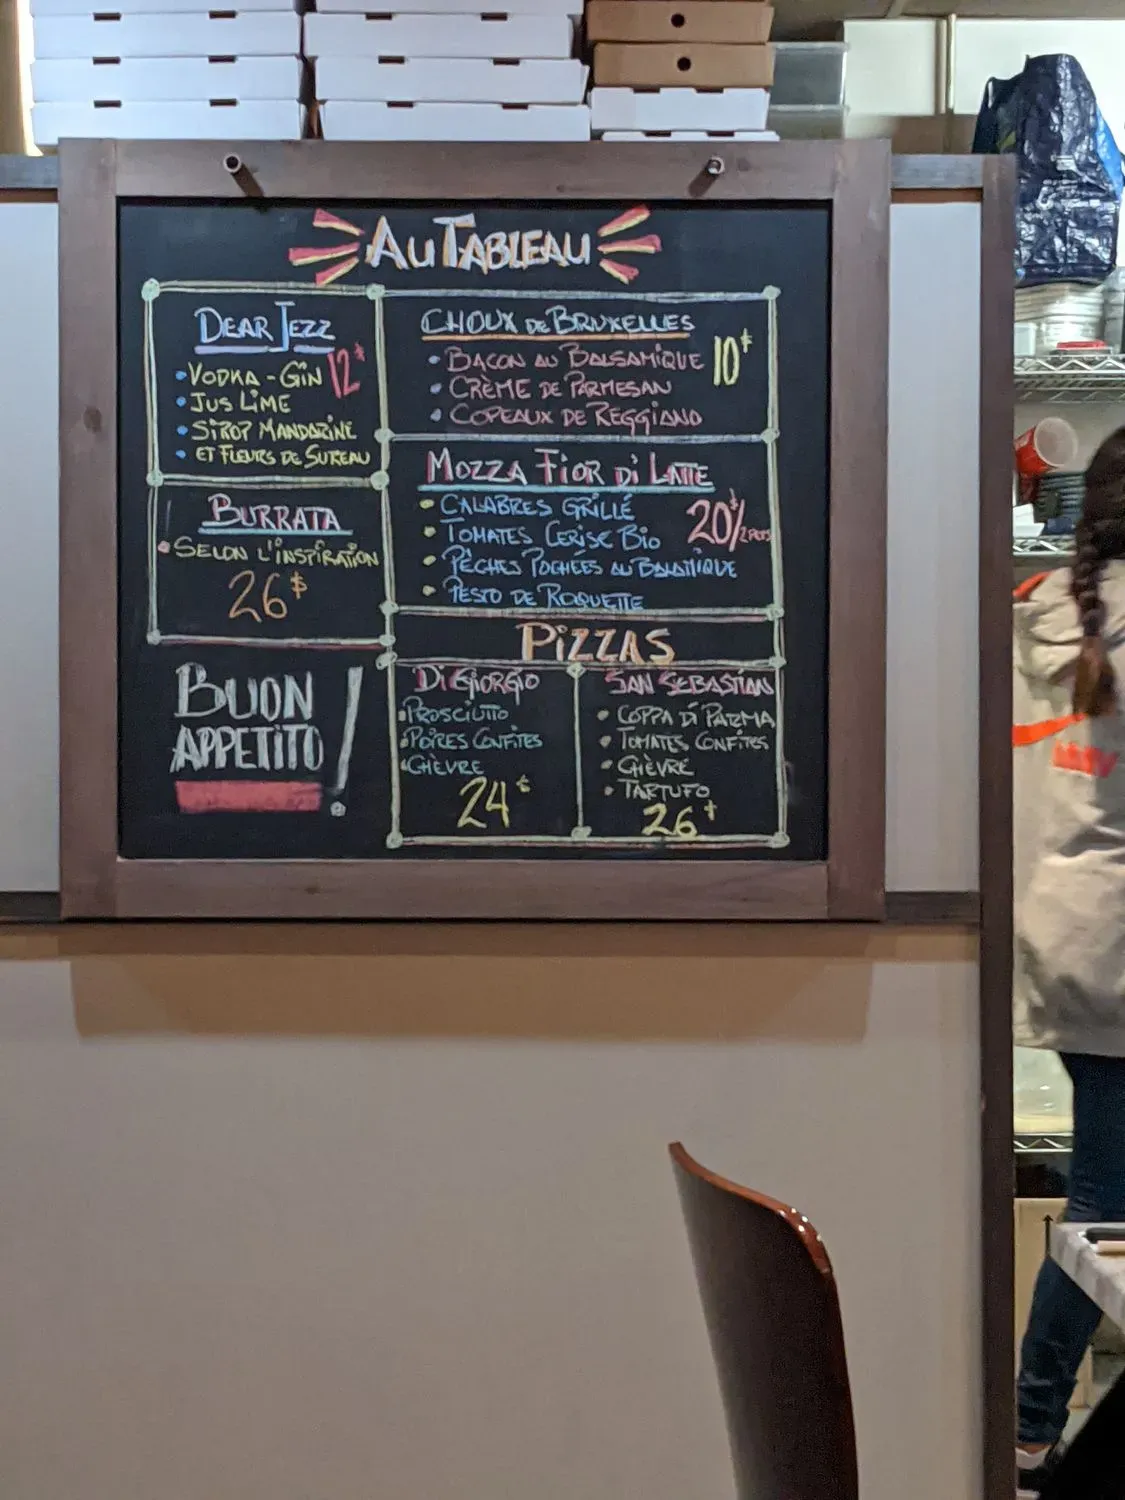 AU TABLEAU
DEAR JEZZ
• VODKA - GIN 12$
• JUS LIME
• SIROP MANDARINE
• ET FLEURS DE SUREAU
BURRATA
• SELON L'INSPIRATION
26$
BUON
APPETITO !
CHOUX DE BRUXELLES
• BACON AU BALSAMIQUE 10$
• CRÈME DE PARMESAN
• COPEAUX DE REGGIANO
MOZZA FIOR DI LATTE
• CALABRES GRILLÉ
• TOMATES CERISE BIO 20$/2 PERS
• PÊCHES POCHÉES AU BALAMIQUE
• PESTO DE ROQUETTE
PIZZAS
DI GIORGIO
• PROSCIUTTO
• POIRES CONFITES
• CHÈVRE
24$
SAN SEBASTIAN
• COPPA DI PARMA
• TOMATES CONFITES
• CHÈVRE
• TARTUFO
26$